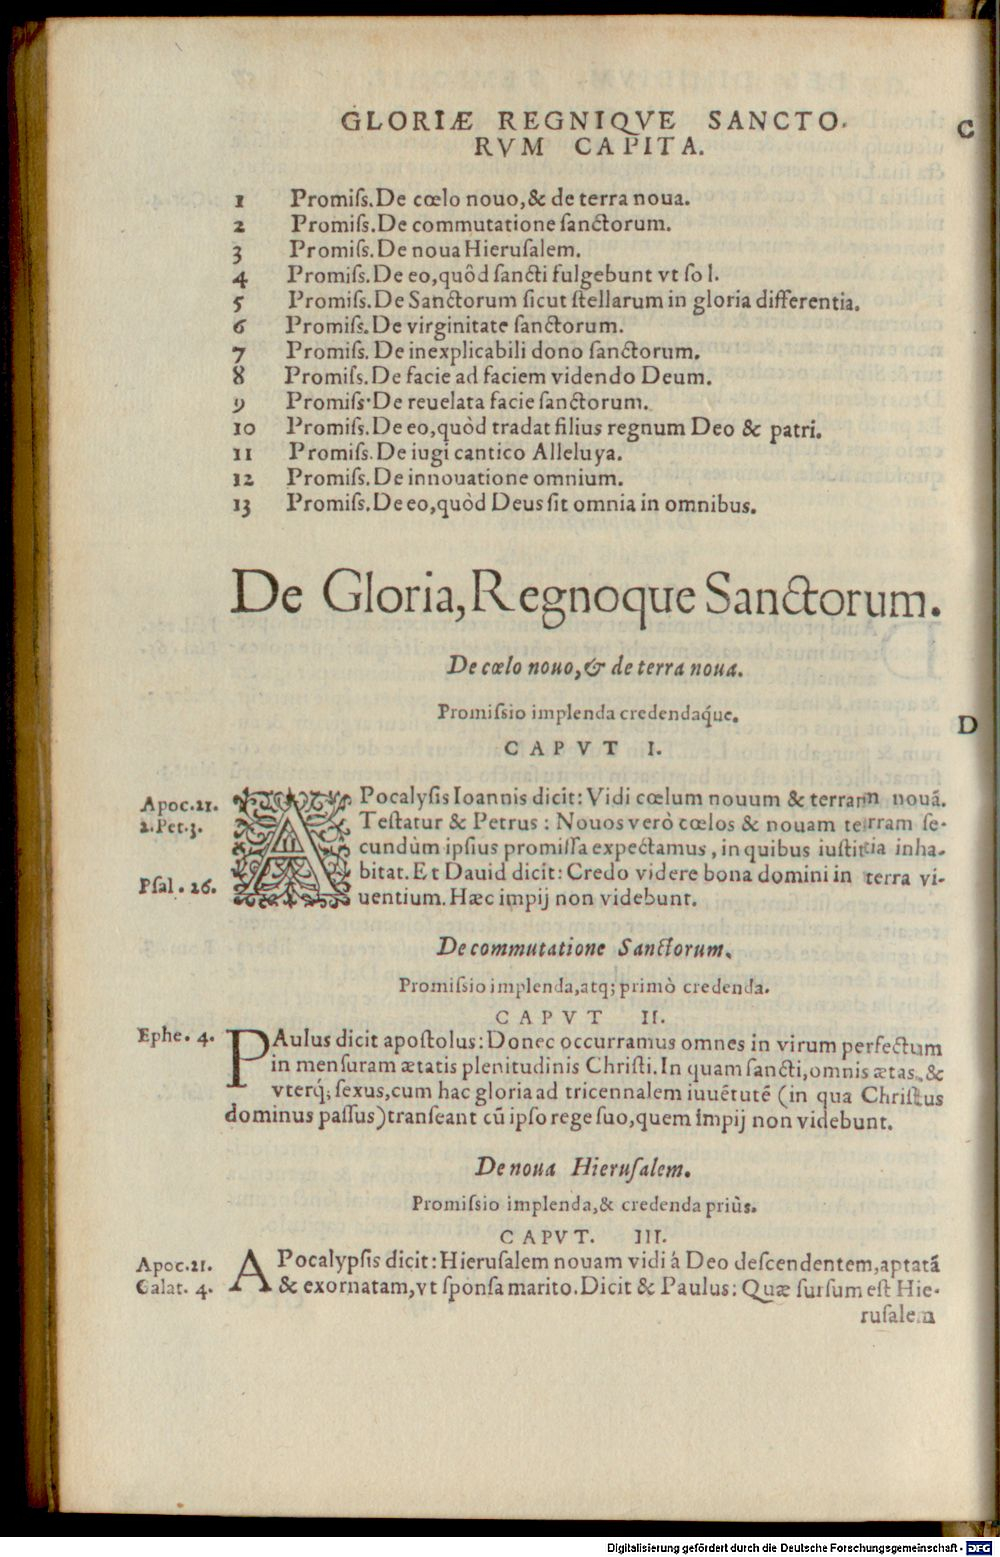 GLORIÆ REGNIQVE SANCTO.
RVM CAPITA.
C
1 Promiſſ. De cœlo nouo, & de terra noua.
2 Promiſſ. De commutatione ſanctorum.
3 Promiſſ. De noua Hieruſalem.
4 Promiſſ. De eo, quôd ſancti fulgebunt vt ſol.
5 Promiſſ. De Sanctorum ſicut ſtellarum in gloria differentia.
6 Promiſſ. De virginitate ſanctorum.
7 Promiſſ. De inexplicabili dono ſanctorum.
8 Promiſſ. De facie ad faciem videndo Deum.
9 Promiſſ· De reuelata facie ſanctorum.
10 Promiſſ. De eo, quòd tradat filius regnum Deo & patri.
11 Promiſſ. De iugi cantico Alleluya.
12 Promiſſ. De innouatione omnium.
13 Promiſſ. De eo, quòd Deus ſit omnia in omnibus.
De Gloria, Regnoque Sanctorum.
De cœlo nouo, & de terra noua.
Promiſsio implenda credendaq́ue.
D
CAPVT I.
Apoc. 21. APocalyſis Ioannis dicit: Vidi cœlum nouum & terram nouā.
2. Pet. 3. Teſtatur & Petrus: Nouos verò cœlos & nouam terram ſe-
cundùm ipſius promiſſa expectamus, in quibus iuſtitia inha-
Pſal. 26. bitat. Et Dauid dicit: Credo videre bona domini in terra vi-
uentium. Hæc impij non videbunt.
De commutatione Sanctorum.
Promiſsio implenda, atq; primò credenda.
CAPVT II.
Ephe. 4. PAulus dicit apoſtolus: Donec occurramus omnes in virum perfectum
in menſuram ætatis plenitudinis Chriſti. In quam ſancti, omnis ætas, &
vterq́; ſexus, cum hac gloria ad tricennalem iuuētutē (in qua Chriſtus
dominus paſſus) tranſeant cū ipſo rege ſuo, quem impij non videbunt.
De noua Hieruſalem.
Promiſsio implenda, & credenda priùs.
CAPVT. III.
Apoc. 21. APocalypſis dicit: Hieruſalem nouam vidi á Deo deſcendentem, aptatā
Galat. 4. & exornatam, vt ſponſa marito. Dicit & Paulus: Quæ ſurſum eſt Hie-
ruſalem
Digitalisierung gefördert durch die Deutsche Forschungsgemeinschaft - DFG